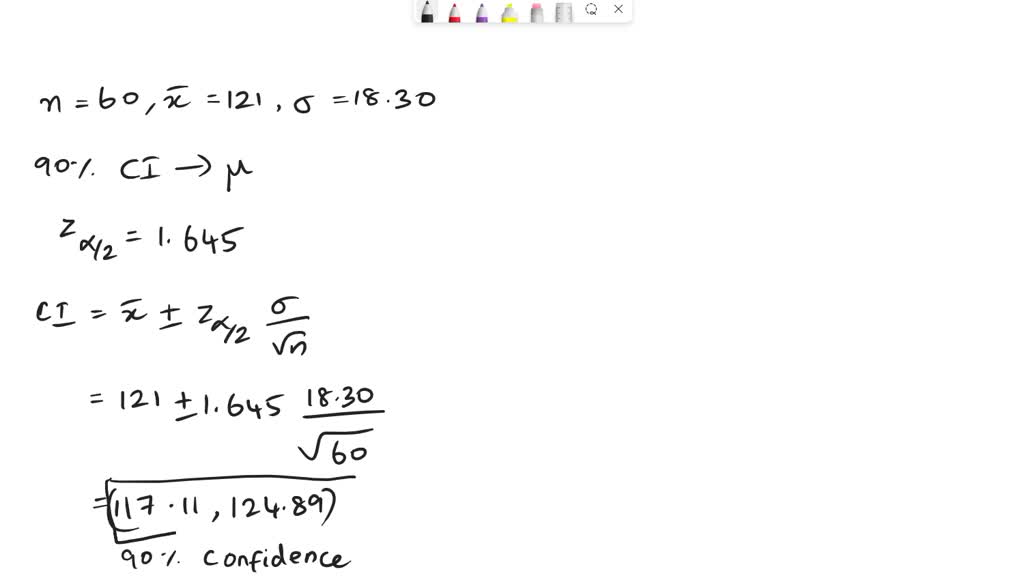 n = 60, x̄ = 121, σ = 18.30
90% CI → μ
z α/2 = 1.645
CI = x̄ ± z α/2 σ/√n
= 121 ± 1.645 18.30/√60
= (117.11, 124.89)
90% confidence